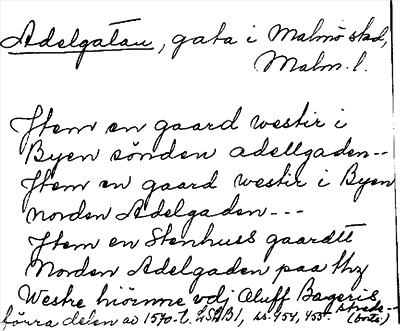 Adelgatan, gata i Malmö stad,
Malm. l.
Item en gaard westir i
Byen sönden adellgaden--
Item en gaard westir i Byen
norden Adelgaden---
Item en Stenhuss gaardtt
Norden Adelgaden paa thz
Westre hiörnne vdj Aluff Bageris
strede--
förra delen av 1570-t. LSAB1, s. 454, 455. (borta)